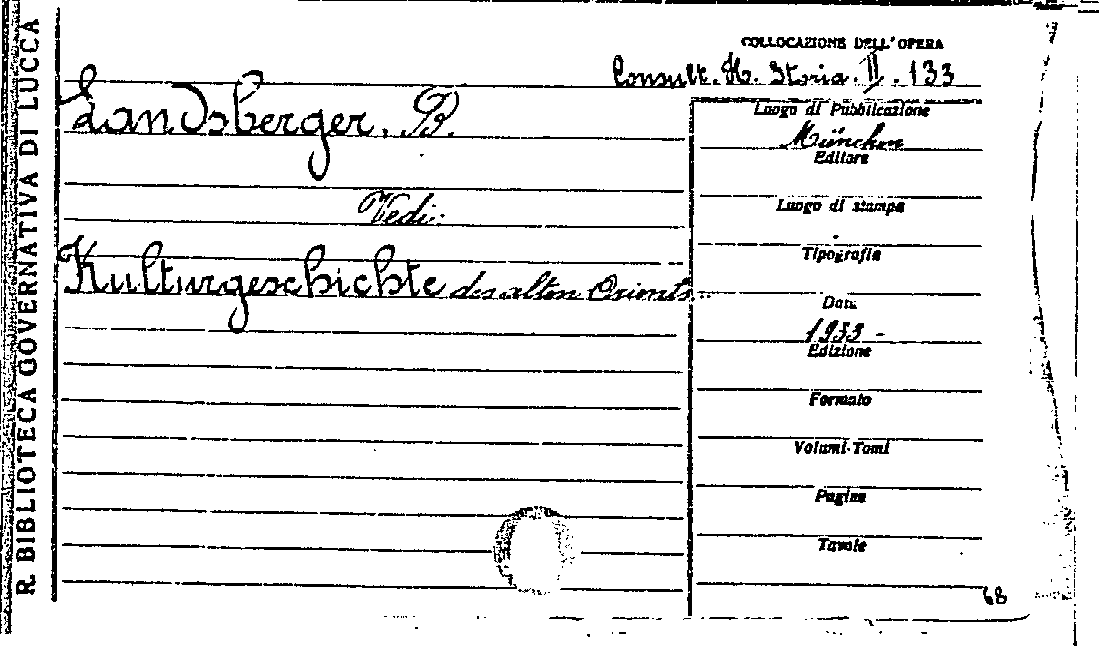 R. BIBLIOTECA GOVERNATIVA DI LUCCA
COLLOCAZIONE DELL'OPERA
Consult. H. Storia. II. 133
Landsberger. B.
Vedi:
Kulturgeschichte des alten Orients
Luogo di Pubblicazione
München
Editore
Luogo di stampa
Tipografia
Data
1933 -
Edizione
Formato
Volumi-Tomi
Pagine
Tavole
68